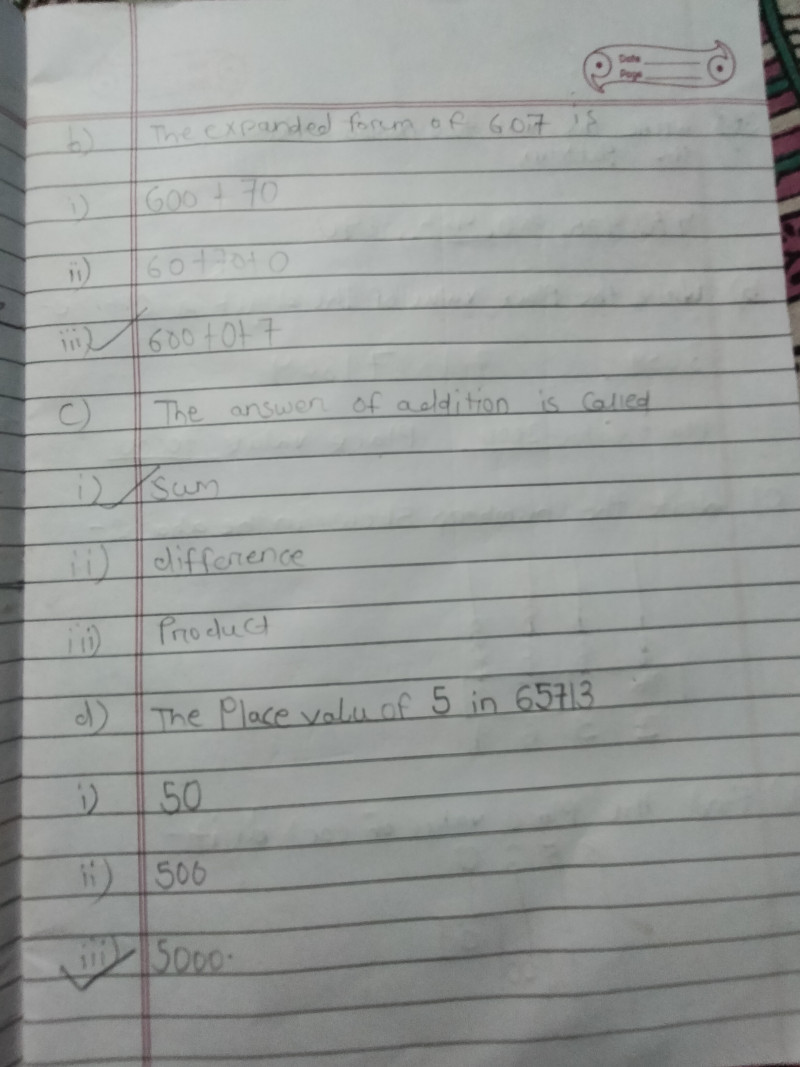 Date
Page
b) The expanded form of 607 is
i) 600 + 70
ii) 60+70+0
iii) 600+0+7
c) The answer of addition is called
i) Sum
ii) difference
iii) Product
d) The Place valu of 5 in 65713
i) 50
ii) 500
iii) 5000.